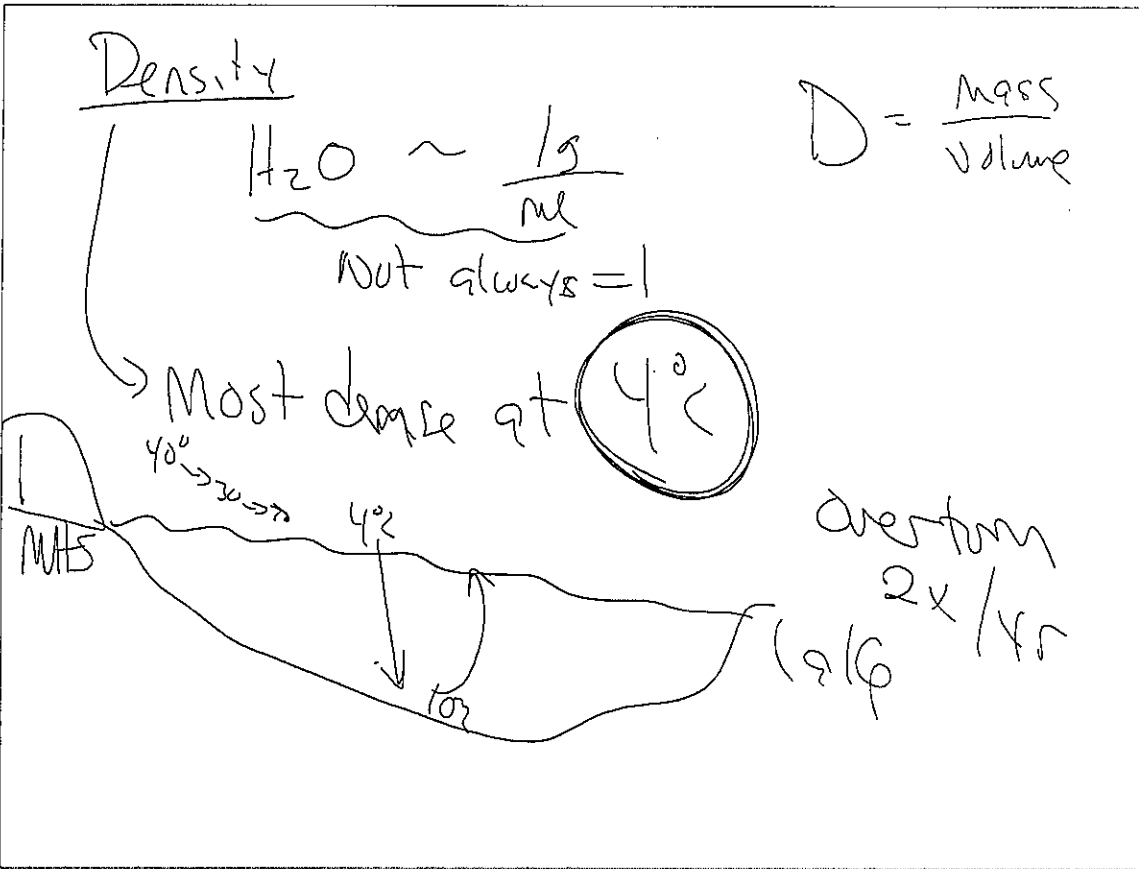 Density
D = Mass / Volume
H₂O ~ 1g / ml
Not always = 1
Most dense at 4°C
40° → 30 →
4°C
overturn
2x/yr